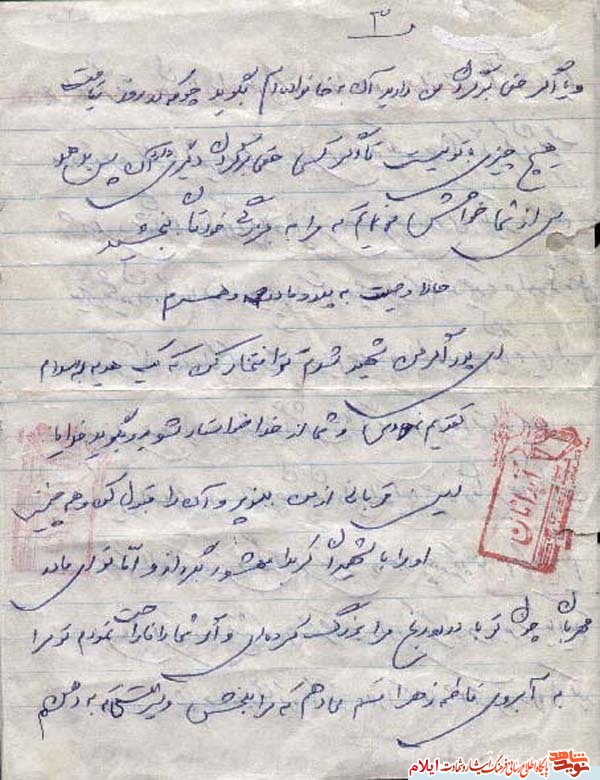 ۳
و یا اگر حقی بگردن من دارید آن به خانواده ام بگوئید چونکه در روز قیامت
هیچ چیزی بد نیست تا اگر کسی حقی بگردن دیگری
من از شما خواهش می نمایم که مرا به بزرگی خودتان ببخشید
حالا وصیت به پدر و مادر و همسرم
ای پدر اگر من شهید شدم تو افتخار کن که یک هدیه به اسلام
تقدیم نمودی و شما از خدا خواستار شوید و بگوئید خدایا
این قربانی از من بپذیر و آن را قبول کن و همچنین
او را با شهیدان کربلا محشور بگردان و امّا تو ای مادر
مهربان چون تو با درد و رنج مرا بزرگ کرده ای و اگر شما را ناراحت نمودم تو مرا
به آبروی فاطمه زهرا قسم میدهم که مرا ببخش
نوید شاهد
پایگاه اطلاع رسانی فرهنگ ایثار و شهادت ایلام